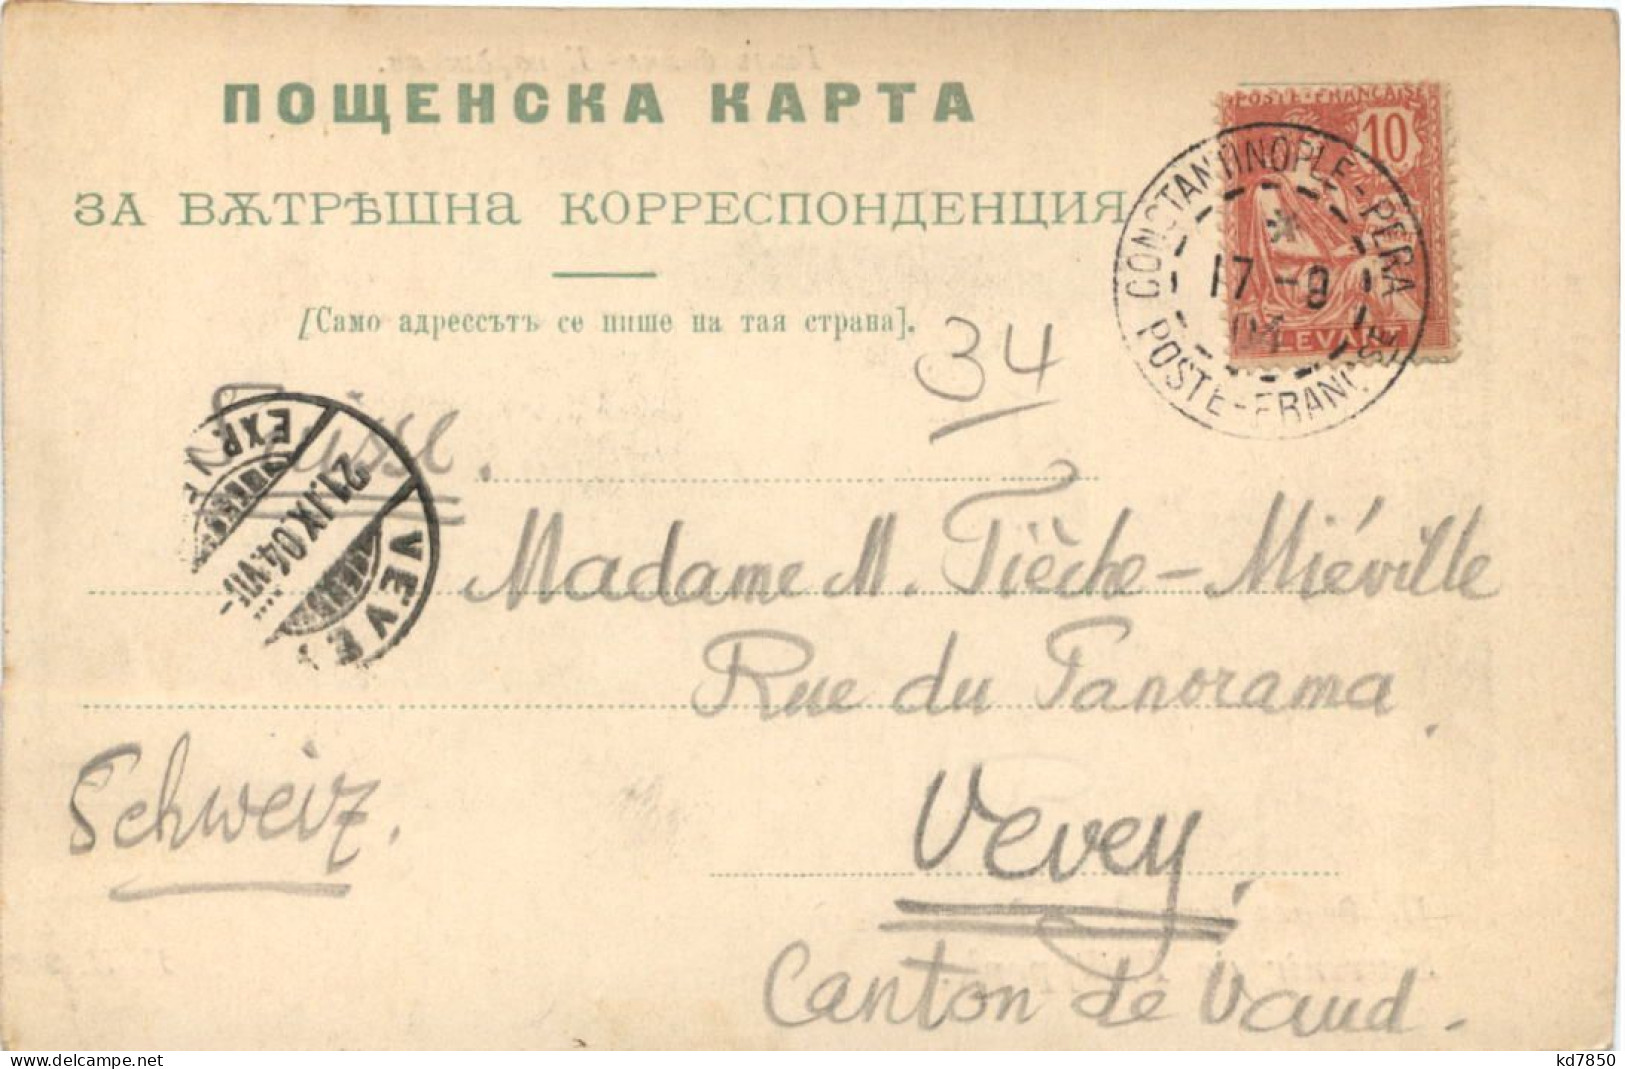 ПОЩЕНСКА КАРТА
ЗА ВѪТРѢШНА КОРРЕСПОНДЕНЦИЯ
[Само адрессътъ се пише на тая страна].
POSTE FRANÇAISE
10
LEVANT
CONSTANTINOPLE-PERA
17 -9
04
POSTE-FRANÇAISE
34
Suisse.
VEVEY
21.IX.04.VII-
EXP.
Madame M. Tièche-Miéville
Rue du Panorama.
Schweiz.
Vevey.
Canton de Vaud.
www.delcampe.net
kd7850